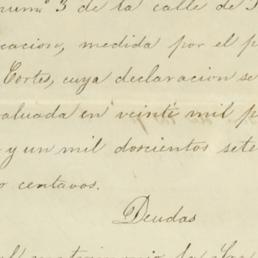 num.º 3 de la calle de
cacion, medida por el p
Cortes, cuya declaracion se
valuada en veinte mil p
y un mil doscientos sete
o centavos.
Deudas